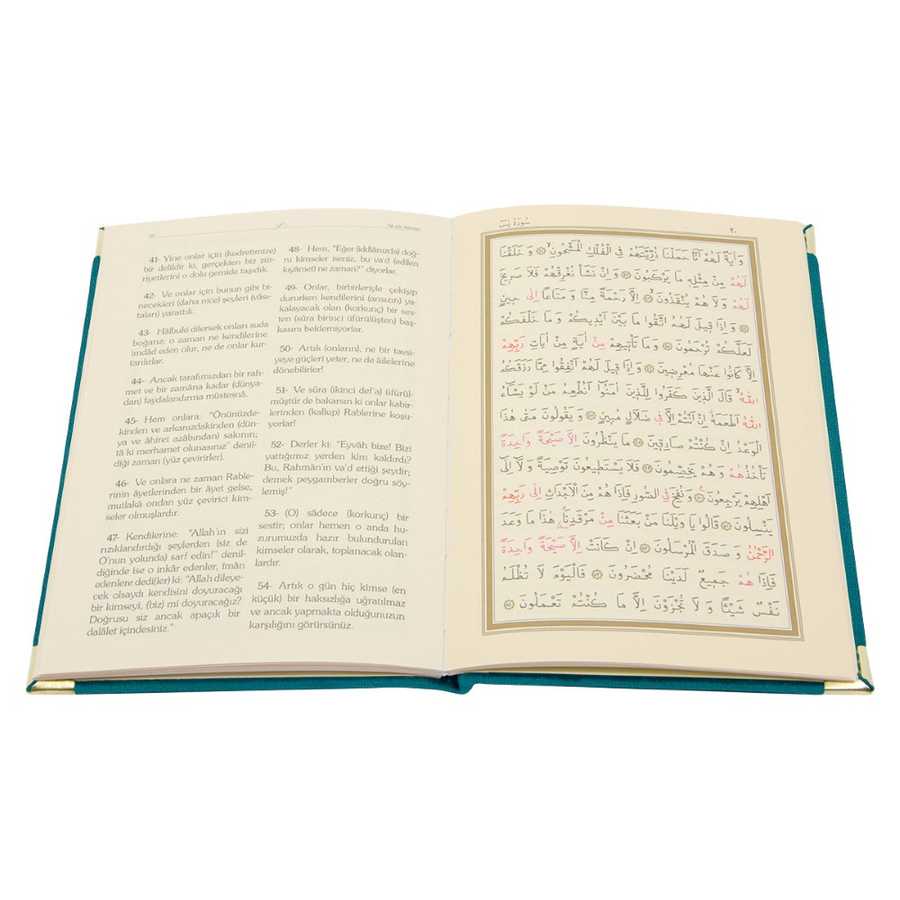 41- Yine onlar için (kudretimize)
bir delildir ki, gerçekten biz zür-
riyetlerini o dolu gemide taşıdık.
42- Ve onlar için bunun gibi bi-
necekleri (daha nice) şeyleri (vâsı-
taları) yarattık.
43- Hâlbuki dilersek onları suda
boğarız; o zaman ne kendilerine
imdâd eden olur, ne de onlar kur-
tarılırlar.
44- Ancak tarafımızdan bir rah-
met ve bir zamâna kadar (dünya-
dan) faydalandırma müstesnâ.
45- Hem onlara: "Önünüzde-
kinden ve arkanızdakinden (dün-
ya ve âhiret azâbından) sakının;
tâ ki merhamet olunasınız" denil-
diği zaman (yüz çevirirler).
46- Ve onlara ne zaman Rable-
rinin âyetlerinden bir âyet gelse,
mutlakâ ondan yüz çevirici kim-
seler olmuşlardır.
47- Kendilerine: "Allah'ın sizi
rızıklandırdığı şeylerden (siz de
O'nun yolunda) sarf edin!" denil-
diğinde ise o inkâr edenler, îmân
edenlere dedi(ler) ki: "Allah dileye-
cek olsaydı kendisini doyuracağı
bir kimseyi, (biz) mi doyuracağız?
Doğrusu siz ancak apaçık bir
dalâlet içindesiniz."
48- Hem, "Eğer (iddiânızda) doğ-
ru kimseler iseniz, bu va'd (edilen
kıyâmet) ne zaman?" diyorlar.
49- Onlar, birbirleriyle çekişip
dururken kendilerini (ansızın) ya-
kalayacak olan (korkunç) bir ses-
ten (sûra birinci üfürülüşten) baş-
kasını beklemiyorlar.
50- Artık (onların), ne bir tavsi-
yeye güçleri yeter, ne de âilelerine
dönebilirler!
51- Ve sûra (ikinci def'a) üfürül-
müştür de bakarsın ki onlar kabir-
lerinden (kalkıp) Rablerine koşu-
yorlar!
52- Derler ki: "Eyvâh bize! Bizi
yattığımız yerden kim kaldırdı?
Bu, Rahmân'ın va'd ettiği şeydir;
demek peygamberler doğru söy-
lemiş!"
53- (O) sâdece (korkunç) bir
sestir; onlar hemen o anda hu-
zurumuzda hazır bulundurulan
kimseler olarak, toplanacak olan-
lardır.
54- Artık o gün hiç kimse (en
küçük) bir haksızlığa uğratılmaz
ve ancak yapmakta olduğunuzun
karşılığını görürsünüz.
٢٠ سُورَةُ يٰسٓ
وَاٰيَةٌ لَهُمْ اَنَّا حَمَلْنَا ذُرِّيَّتَهُمْ فِي الْفُلْكِ الْمَشْحُونِ ﴿٤١﴾ وَخَلَقْنَا
لَهُمْ مِنْ مِثْلِهٖ مَا يَرْكَبُونَ ﴿٤٢﴾ وَاِنْ نَشَأْ نُغْرِقْهُمْ فَلَا صَرٖيخَ
لَهُمْ وَلَا هُمْ يُنْقَذُونَ ﴿٤٣﴾ اِلَّا رَحْمَةً مِنَّا وَمَتَاعًا اِلٰى حٖينٍ
﴿٤٤﴾ وَاِذَا قٖيلَ لَهُمُ اتَّقُوا مَا بَيْنَ اَيْدٖيكُمْ وَمَا خَلْفَكُمْ
لَعَلَّكُمْ تُرْحَمُونَ ﴿٤٥﴾ وَمَا تَأْتٖيهِمْ مِنْ اٰيَةٍ مِنْ اٰيَاتِ رَبِّهِمْ
اِلَّا كَانُوا عَنْهَا مُعْرِضٖينَ ﴿٤٦﴾ وَاِذَا قٖيلَ لَهُمْ اَنْفِقُوا مِمَّا رَزَقَكُمُ
اللّٰهُ قَالَ الَّذٖينَ كَفَرُوا لِلَّذٖينَ اٰمَنُوا اَنُطْعِمُ مَنْ لَوْ يَشَاءُ
اللّٰهُ اَطْعَمَهُ اِنْ اَنْتُمْ اِلَّا فٖي ضَلَالٍ مُبٖينٍ ﴿٤٧﴾ وَيَقُولُونَ مَتٰى هٰذَا
الْوَعْدُ اِنْ كُنْتُمْ صَادِقٖينَ ﴿٤٨﴾ مَا يَنْظُرُونَ اِلَّا صَيْحَةً وَاحِدَةً
تَأْخُذُهُمْ وَهُمْ يَخِصِّمُونَ ﴿٤٩﴾ فَلَا يَسْتَطٖيعُونَ تَوْصِيَةً وَلَا اِلٰى
اَهْلِهِمْ يَرْجِعُونَ ﴿٥٠﴾ وَنُفِخَ فِي الصُّورِ فَاِذَا هُمْ مِنَ الْاَجْدَاثِ اِلٰى رَبِّهِمْ
يَنْسِلُونَ ﴿٥١﴾ قَالُوا يَا وَيْلَنَا مَنْ بَعَثَنَا مِنْ مَرْقَدِنَا هٰذَا مَا وَعَدَ
الرَّحْمٰنُ وَصَدَقَ الْمُرْسَلُونَ ﴿٥٢﴾ اِنْ كَانَتْ اِلَّا صَيْحَةً وَاحِدَةً
فَاِذَا هُمْ جَمٖيعٌ لَدَيْنَا مُحْضَرُونَ ﴿٥٣﴾ فَالْيَوْمَ لَا تُظْلَمُ
نَفْسٌ شَيْئًا وَلَا تُجْزَوْنَ اِلَّا مَا كُنْتُمْ تَعْمَلُونَ ﴿٥٤﴾